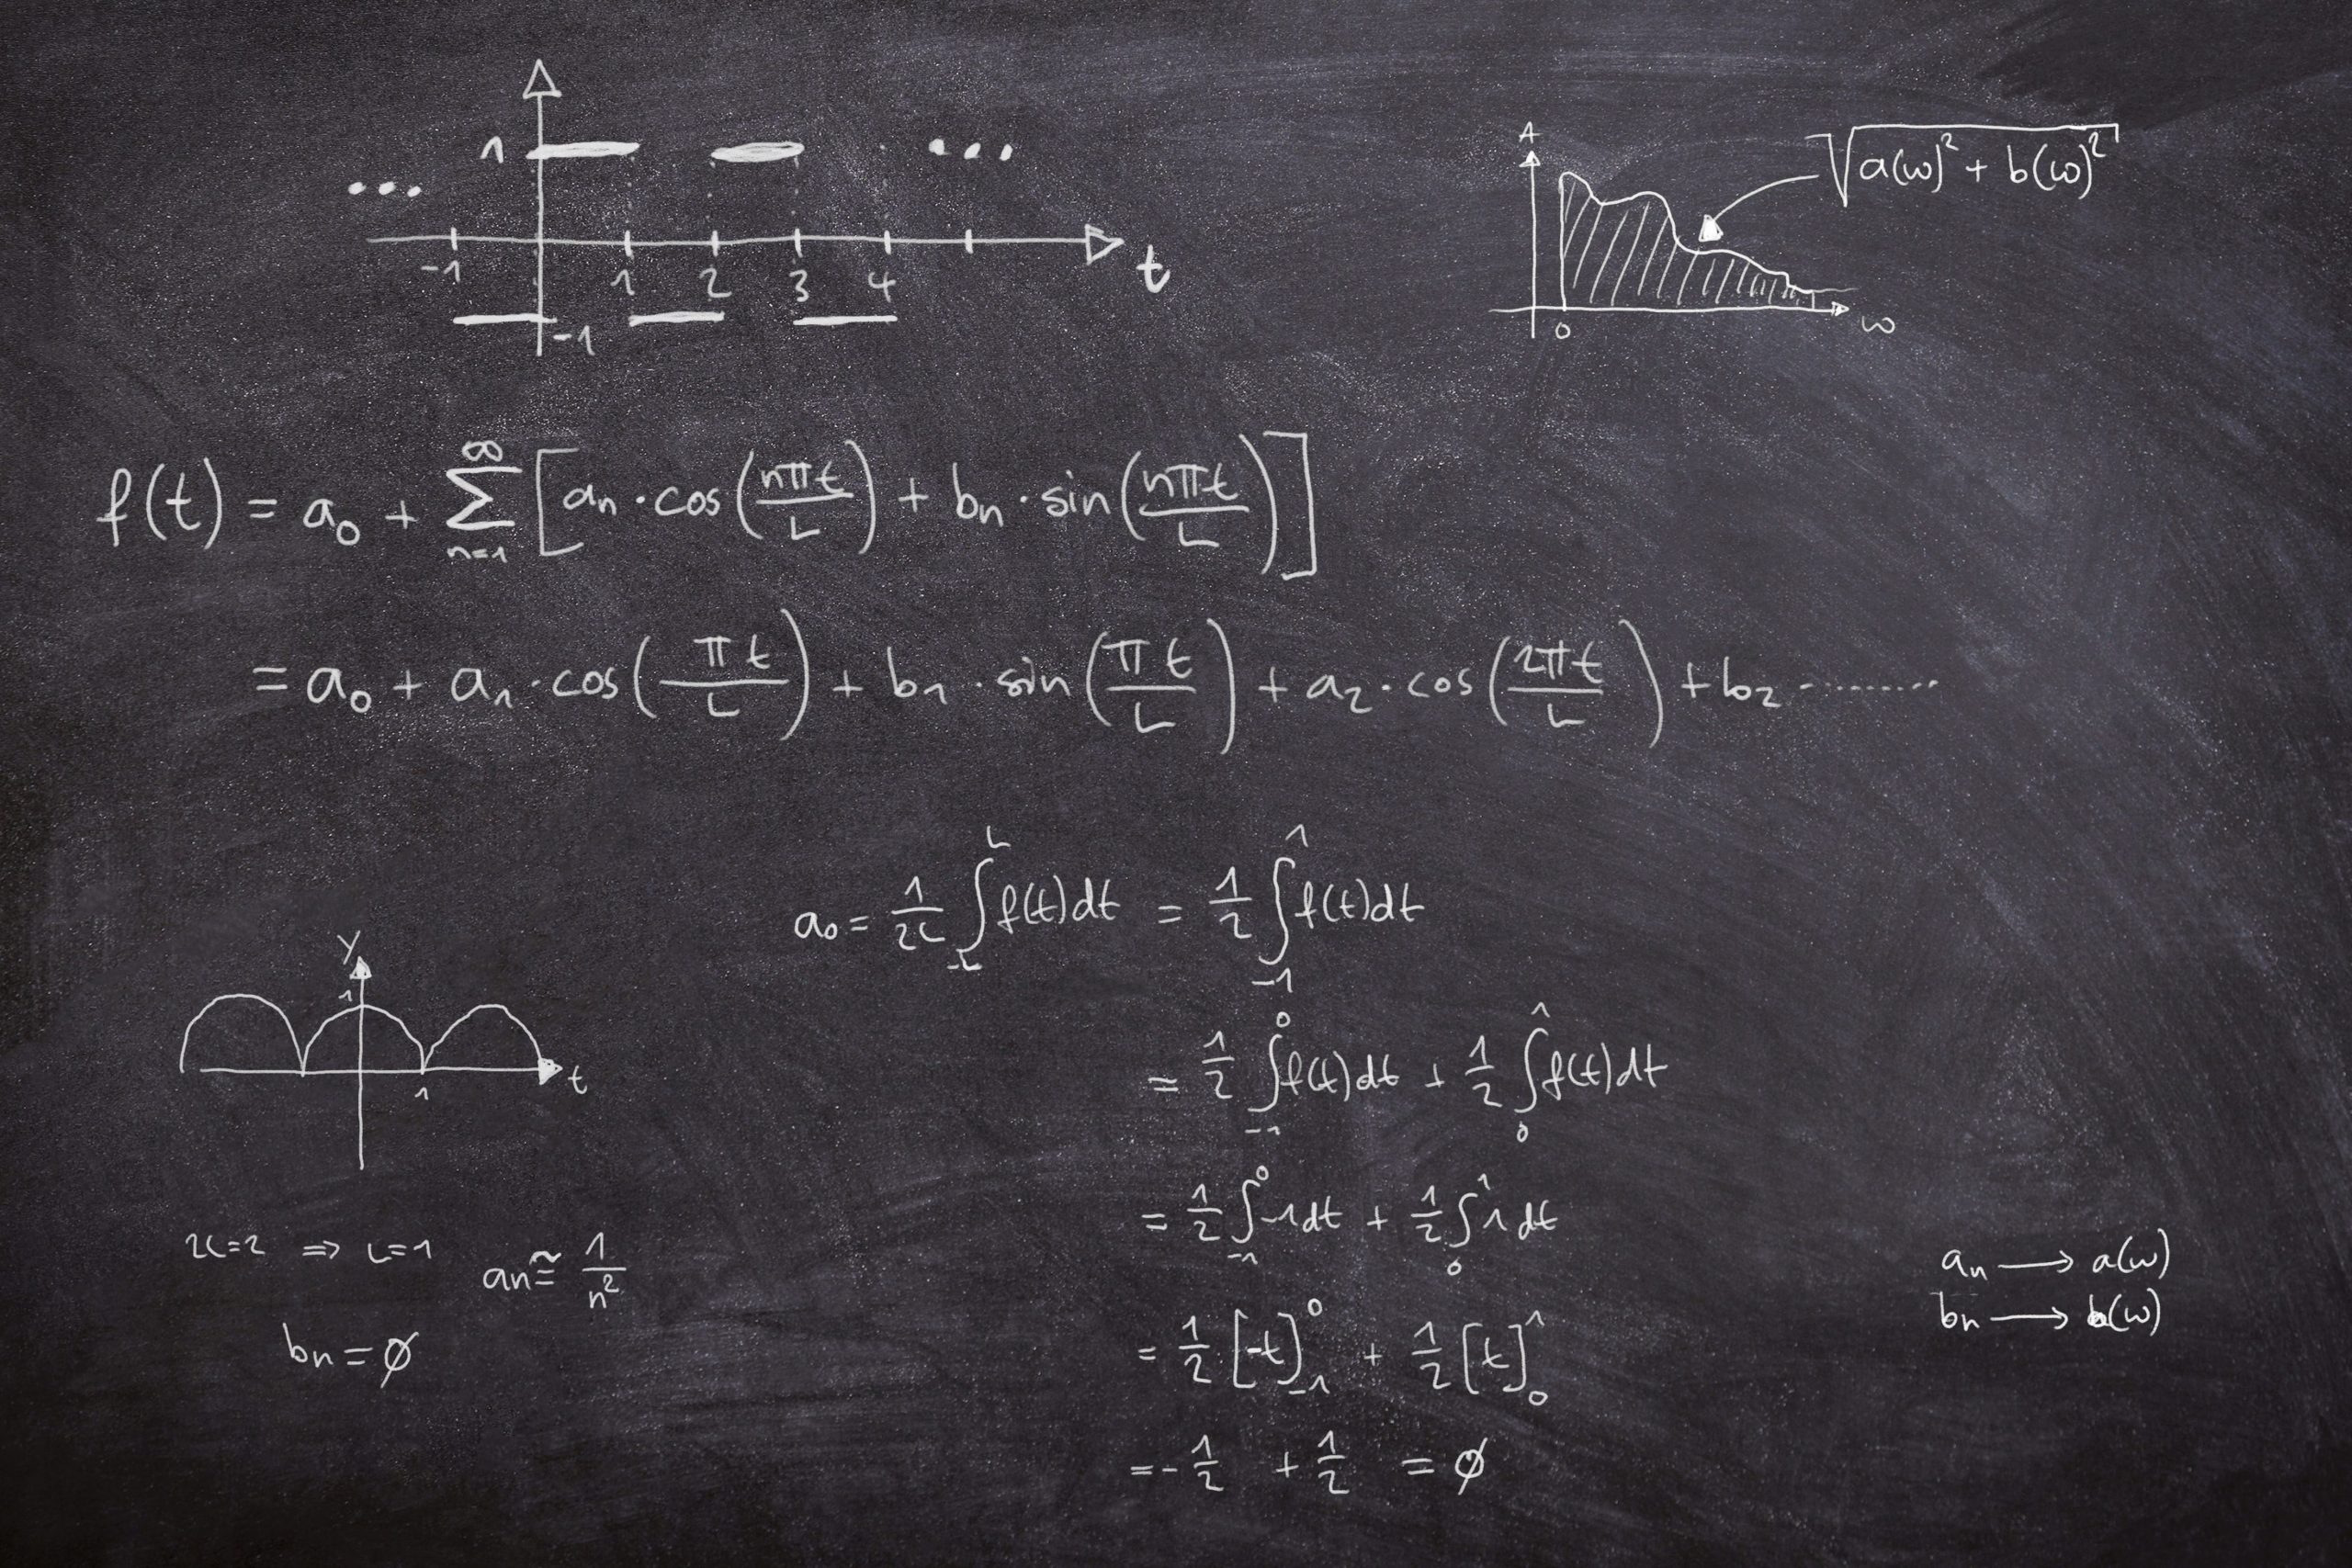 1
... ...
-1 1 2 3 4 t
-1
A
√(a(ω)² + b(ω)²)
0 ω
f(t) = a₀ + ∑ₙ₌₁^∞ [aₙ · cos(nπt/L) + bₙ · sin(nπt/L)]
= a₀ + a₁ · cos(πt/L) + b₁ · sin(πt/L) + a₂ · cos(2πt/L) + b₂ ..........
a₀ = 1/2L ∫₋L^L f(t)dt = 1/2 ∫₋₁^1 f(t)dt
= 1/2 ∫₋₁^0 f(t)dt + 1/2 ∫₀^1 f(t)dt
= 1/2 ∫₋₁^0 -1dt + 1/2 ∫₀^1 1dt
= 1/2 [-t]₋₁^0 + 1/2 [t]₀^1
= -1/2 + 1/2 = ∅
y
1
1 t
2L=2 ⇒ L=1
aₙ ≅ 1/n²
bₙ = ∅
aₙ → a(ω)
bₙ → b(ω)